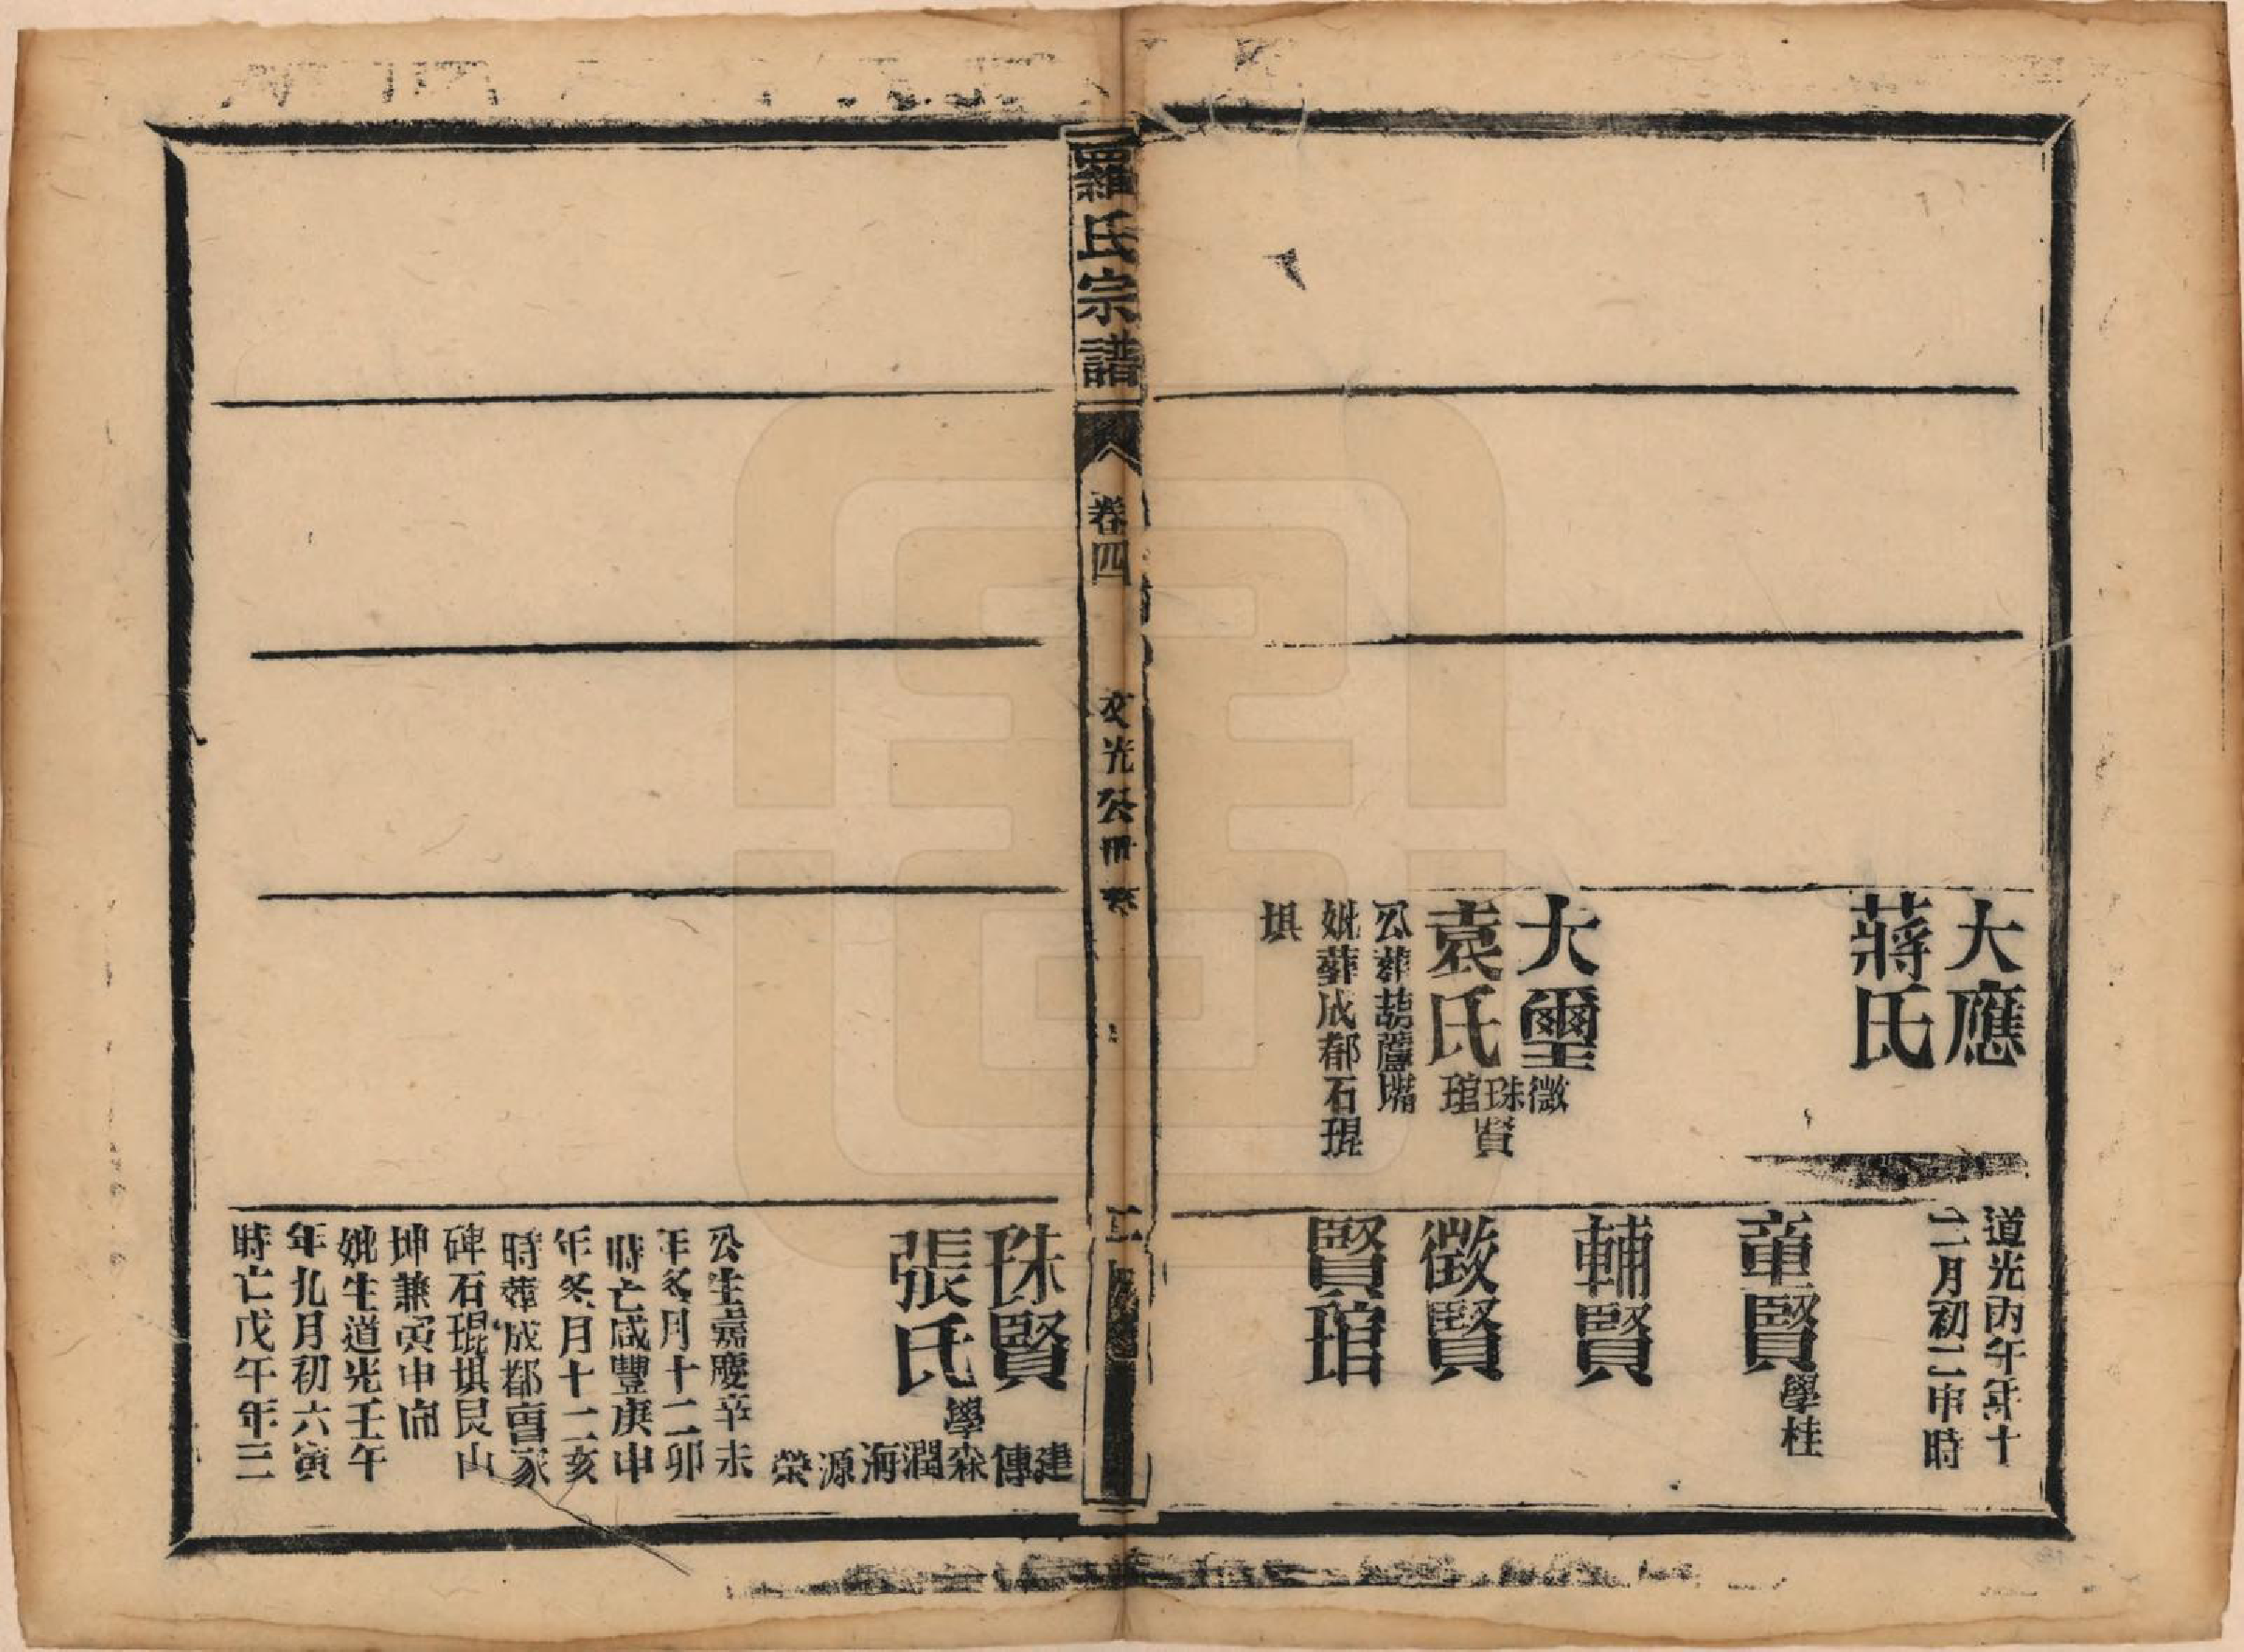 大應
蔣氏
大璽
袁氏
徽
珠賢
琯
公葬葫蘆嘴
妣葬成都石琨
堒
道光丙午年十
二月初二申時
童賢
學桂
輔賢
徵賢
賢琯
羅氏宗譜
卷四
文光公冊
二
珠賢
張氏
學
建傳森潤海源榮
公生嘉慶辛未
年冬月十二卯
時亡咸豐庚申
年冬月十二亥
時葬成都曹家
碑石琨堒艮山
坤兼寅申向
妣生道光壬午
年九月初六寅
時亡戊午年三